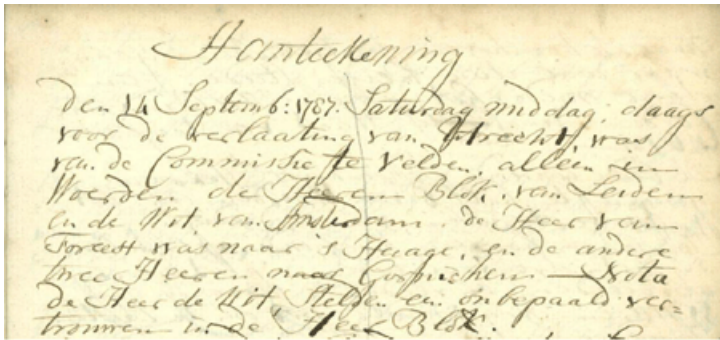 Hanteekening
den 14 Septemb: 1787. Saturdag middag, daags
voor de verlaating van Utrecht, was
van de Commissie te Velden, alleen in
Woerden de Heeren Blok, van Leiden
en de Wit, van Amsterdam. de Heer van
Foreest was naar 's Haage, en de andere
twee Heeren naar Gorinchem — Nota
de Heer de Wit, stelden een onbepaald ver=
trouwen in de Heer Blok.